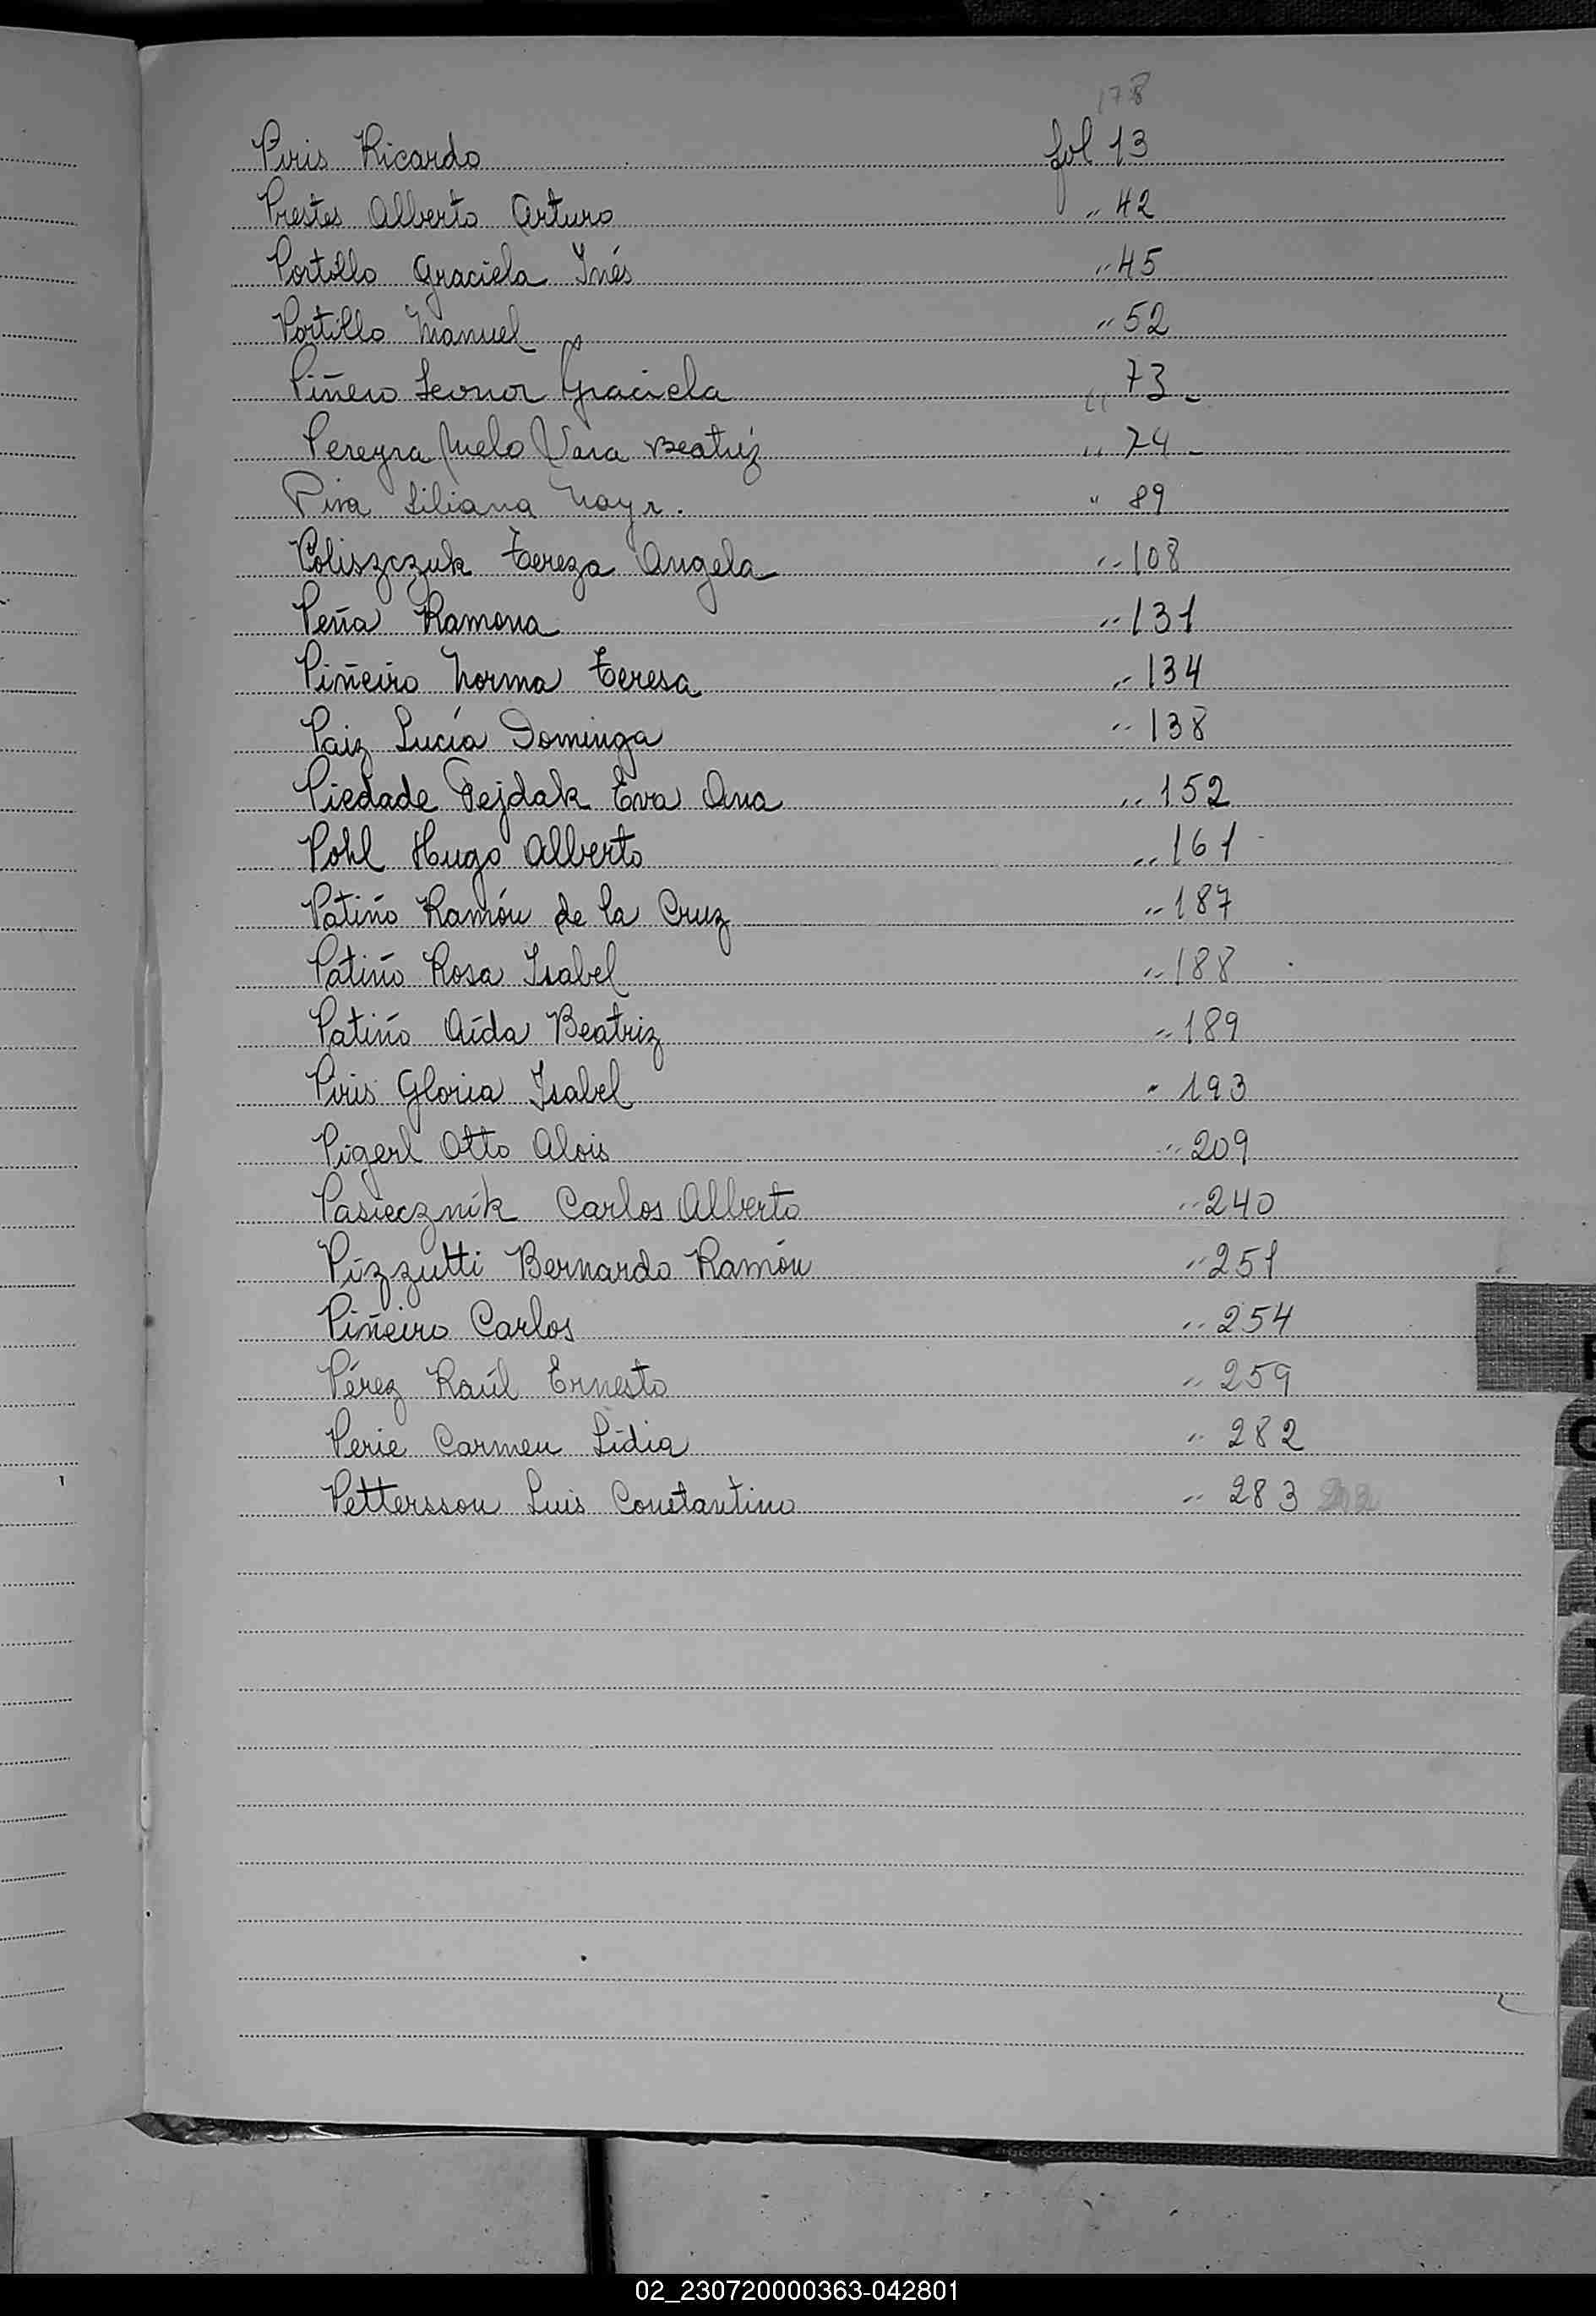 178
Piris Ricardo fol 13
Prestes Alberto Arturo " 42
Portillo Graciela Inés " 45
Portillo Manuel " 52
Piñero Leonor Graciela " 73 -
Pereyra Melo Vara Beatriz " 74 -
Piva Liliana Nayr. " 89
Poliszczuk Tereza Angela " 108
Peña Ramona " 131
Piñeiro Norma Teresa " 134
Paiz Lucía Dominga " 138
Piedade Pejdak Eva Ana " 152
Pohl Hugo Alberto " 161
Patiño Ramón de la Cruz " 187
Patiño Rosa Isabel " 188
Patiño Aída Beatriz " 189
Piris Gloria Isabel " 193
Pigerl Otto Alois " 209
Pasiecznik Carlos Alberto " 240
Pizzutti Bernardo Ramón " 251
Piñeiro Carlos " 254
Pérez Raúl Ernesto " 259
Perie Carmen Lidia " 282
Pettersson Luis Constantino " 283
02_230720000363-042801